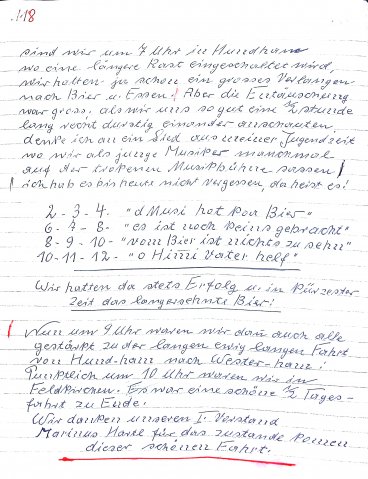 118
sind wir um 7 Uhr in Hundham
wo eine längere Rast eingeschaltet wird,
wir hatten ja schon ein grosses Verlangen
nach Bier u. Essen! Aber die Entäuschung
war gross, als wir uns so gut eine ½ stunde
lang recht durstig einander anschauten,
denke ich an ein Lied aus meiner Jugendzeit
wo wir als junge Musiker manchmal
auf der trokenen Musikbühne sassen
ich hab es bis heute nicht vergessen, da heist es!
2 - 3 - 4. "d Musi hat koa Bier"
6 - 7 - 8 - "es ist noch keins gebracht"
8 - 9 - 10 - "vom Bier ist nichts zu sehn"
10 - 11 - 12 - "o Himi vater helf"
Wir hatten da stets Erfolg u. in kürzester
Zeit das langersehnte Bier!
Nun um 9 Uhr waren wir dann auch alle
gestärkt zu der langen ewig langen Fahrt
von Hund-ham nach Wester-ham!
Punktlich um 10 Uhr waren wir in
Feldkirchen. Es war eine schöne ½ Tages-
fahrt zu Ende.
Wir danken unseren I. Vorstand
Marinus Hartl für das zustande komen
dieser schönen Fahrt.